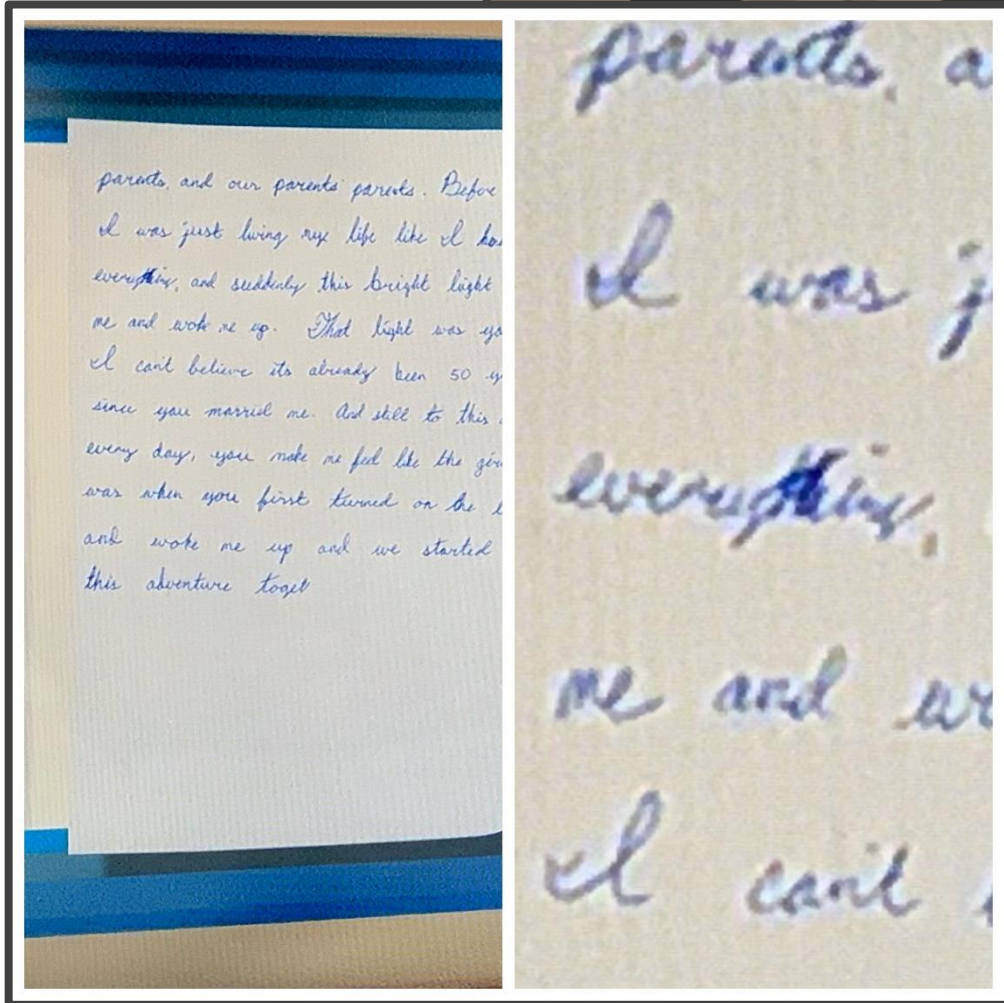 parents, and our parents' parents. Before
I was just living my life like I
everything, and suddenly this bright light
me and woke me up. That light was
I can't believe its already been 50
since you married me. And still to this
every day, you make me feel like the
was when you first turned on the
and woke me up and we started
this adventure toget
parents, a
I was j
everything,
me and
I can't